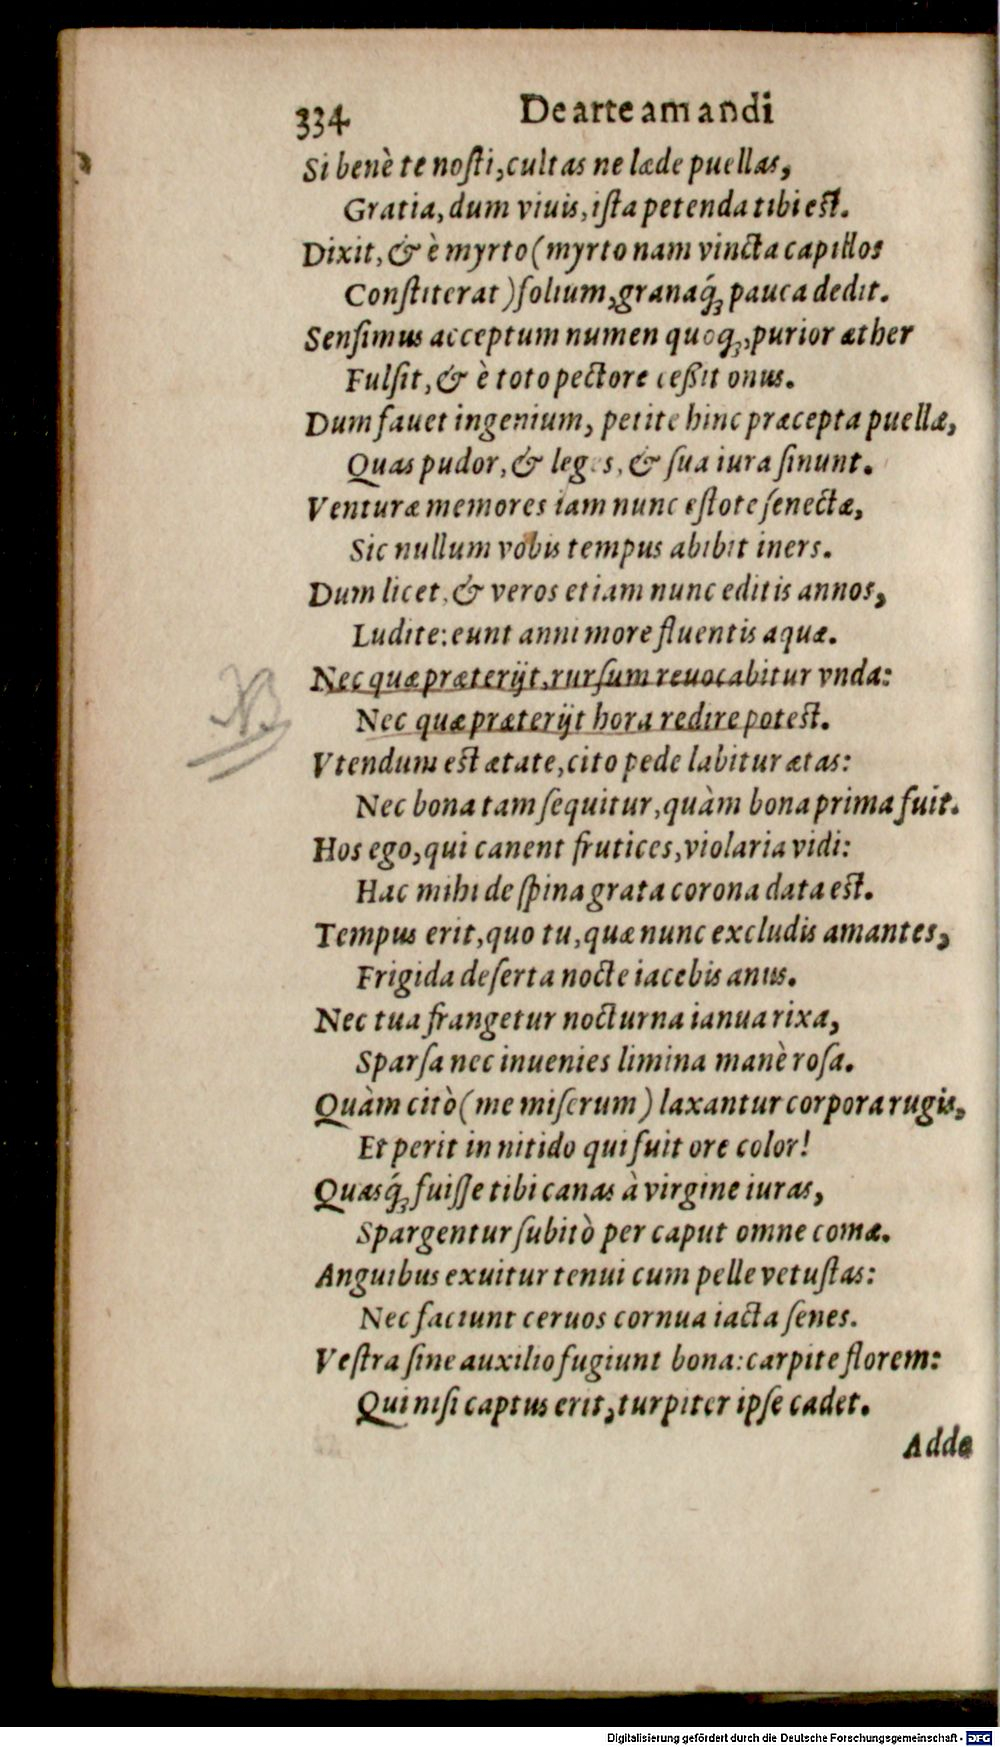 334 De arte amandi
Si benè te noſti, cultas ne læde puellas,
Gratia, dum viuis, iſta petenda tibi eſt.
Dixit, & è myrto (myrto nam vincta capillos
Conſtiterat) folium, granaq́; pauca dedit.
Senſimus acceptum numen quoq;, purior æther
Fulſit, & è toto pectore ceßit onus.
Dum fauet ingenium, petite hinc præcepta puellæ,
Quas pudor, & leges, & ſua iura ſinunt.
Venturæ memores iam nunc eſtote ſenectæ,
Sic nullum vobis tempus abibit iners.
Dum licet, & veros etiam nunc editis annos,
Ludite: eunt anni more fluentis aquæ.
Nec quæ præterijt, rurſum reuocabitur vnda:
Nec quæ præterijt hora redire poteſt.
Vtendum eſt ætate, cito pede labitur ætas:
Nec bona tam ſequitur, quàm bona prima fuit.
Hos ego, qui canent frutices, violaria vidi:
Hac mihi de ſpina grata corona data eſt.
Tempus erit, quo tu, quæ nunc excludis amantes,
Frigida deſerta nocte iacebis anus.
Nec tua frangetur nocturna ianua rixa,
Sparſa nec inuenies limina manè roſa.
Quàm citò (me miſerum) laxantur corpora rugis,
Et perit in nitido qui fuit ore color!
Quasq́; fuiſſe tibi canas à virgine iuras,
Spargentur ſubitò per caput omne comæ.
Anguibus exuitur tenui cum pelle vetuſtas:
Nec faciunt ceruos cornua iacta ſenes.
Veſtra ſine auxilio fugiunt bona: carpite florem:
Qui niſi captus erit, turpiter ipſe cadet.
Adde
Digitalisierung gefördert durch die Deutsche Forschungsgemeinschaft - DFG